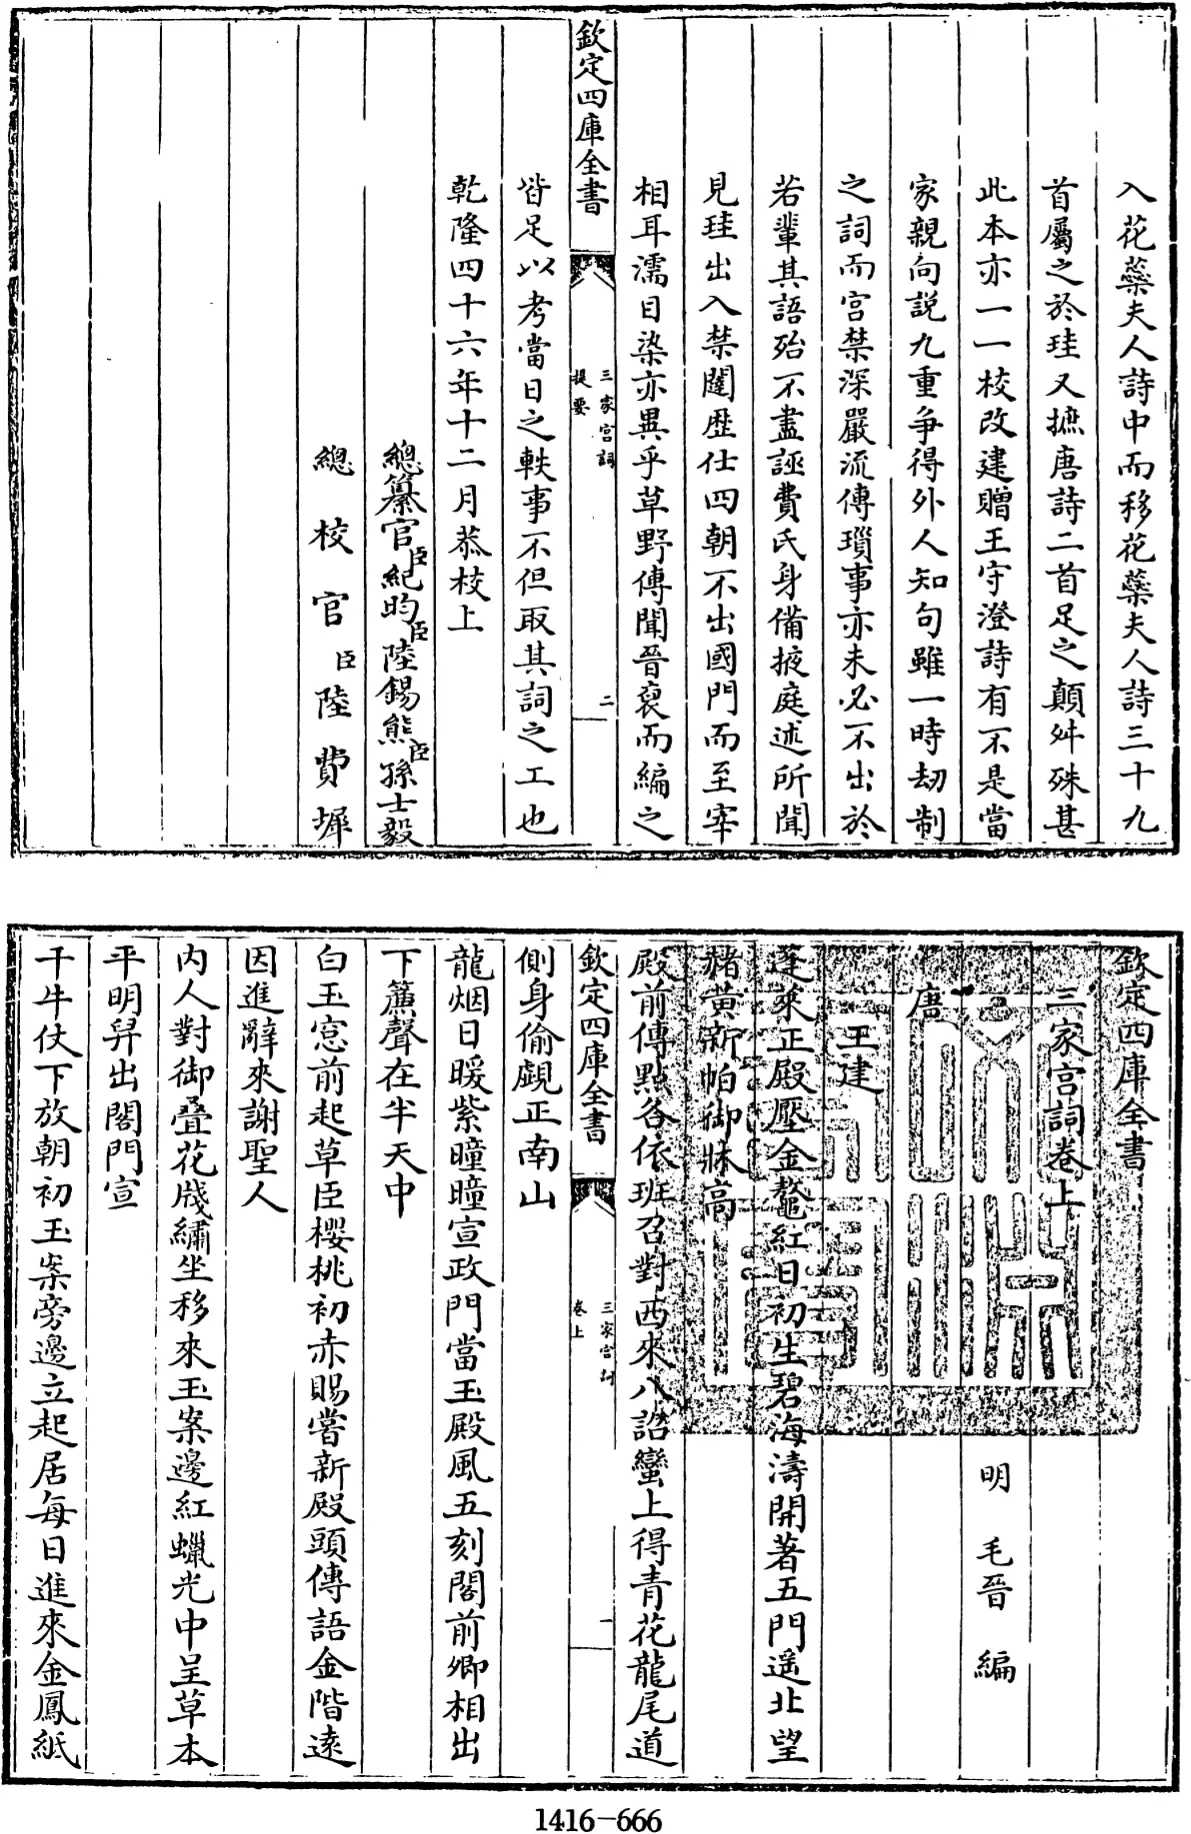 入花蘂夫人詩中而移花蘂夫人詩三十九
首屬之於珪又摭唐詩二首足之顛舛殊甚
此本亦一一校改建贈王守澄詩有不是當
家親向説九重爭得外人知句雖一時刼制
之詞而宫禁深嚴流傳瑣事亦未必不出於
若輩其語殆不盡誣費氏身備掖庭述所聞
見珪出入禁闥歴仕四朝不出國門而至宰
相耳濡目染亦異乎草野傳聞晉裒而編之
欽定四庫全書
三家宫詞
提要
二
皆足以考當日之軼事不但取其詞之工也
乾隆四十六年十二月恭校上
總纂官臣紀昀臣陸錫熊臣孫士毅
總校官臣陸費墀
欽定四庫全書
三家宫詞卷上
明 毛晉 編
唐
王建
蓬萊正殿壓金鼇紅日初生碧海濤開著五門遥北望
赭黄新帕御牀高
殿前傳點各依班召對西來八詔蠻上得青花龍尾道
欽定四庫全書
三家宫詞
卷上
一
側身偷覷正南山
龍烟日暖紫曈曈宣政門當玉殿風五刻閣前卿相出
下簾聲在半天中
白玉窓前起草臣櫻桃初赤賜嘗新殿頭傳語金階逺
因進辭來謝聖人
内人對御疊花牋繡坐移來玉案邊紅蠟光中呈草本
平明舁出閣門宣
千牛仗下放朝初玉案旁邊立起居每日進來金鳳紙
1416-666